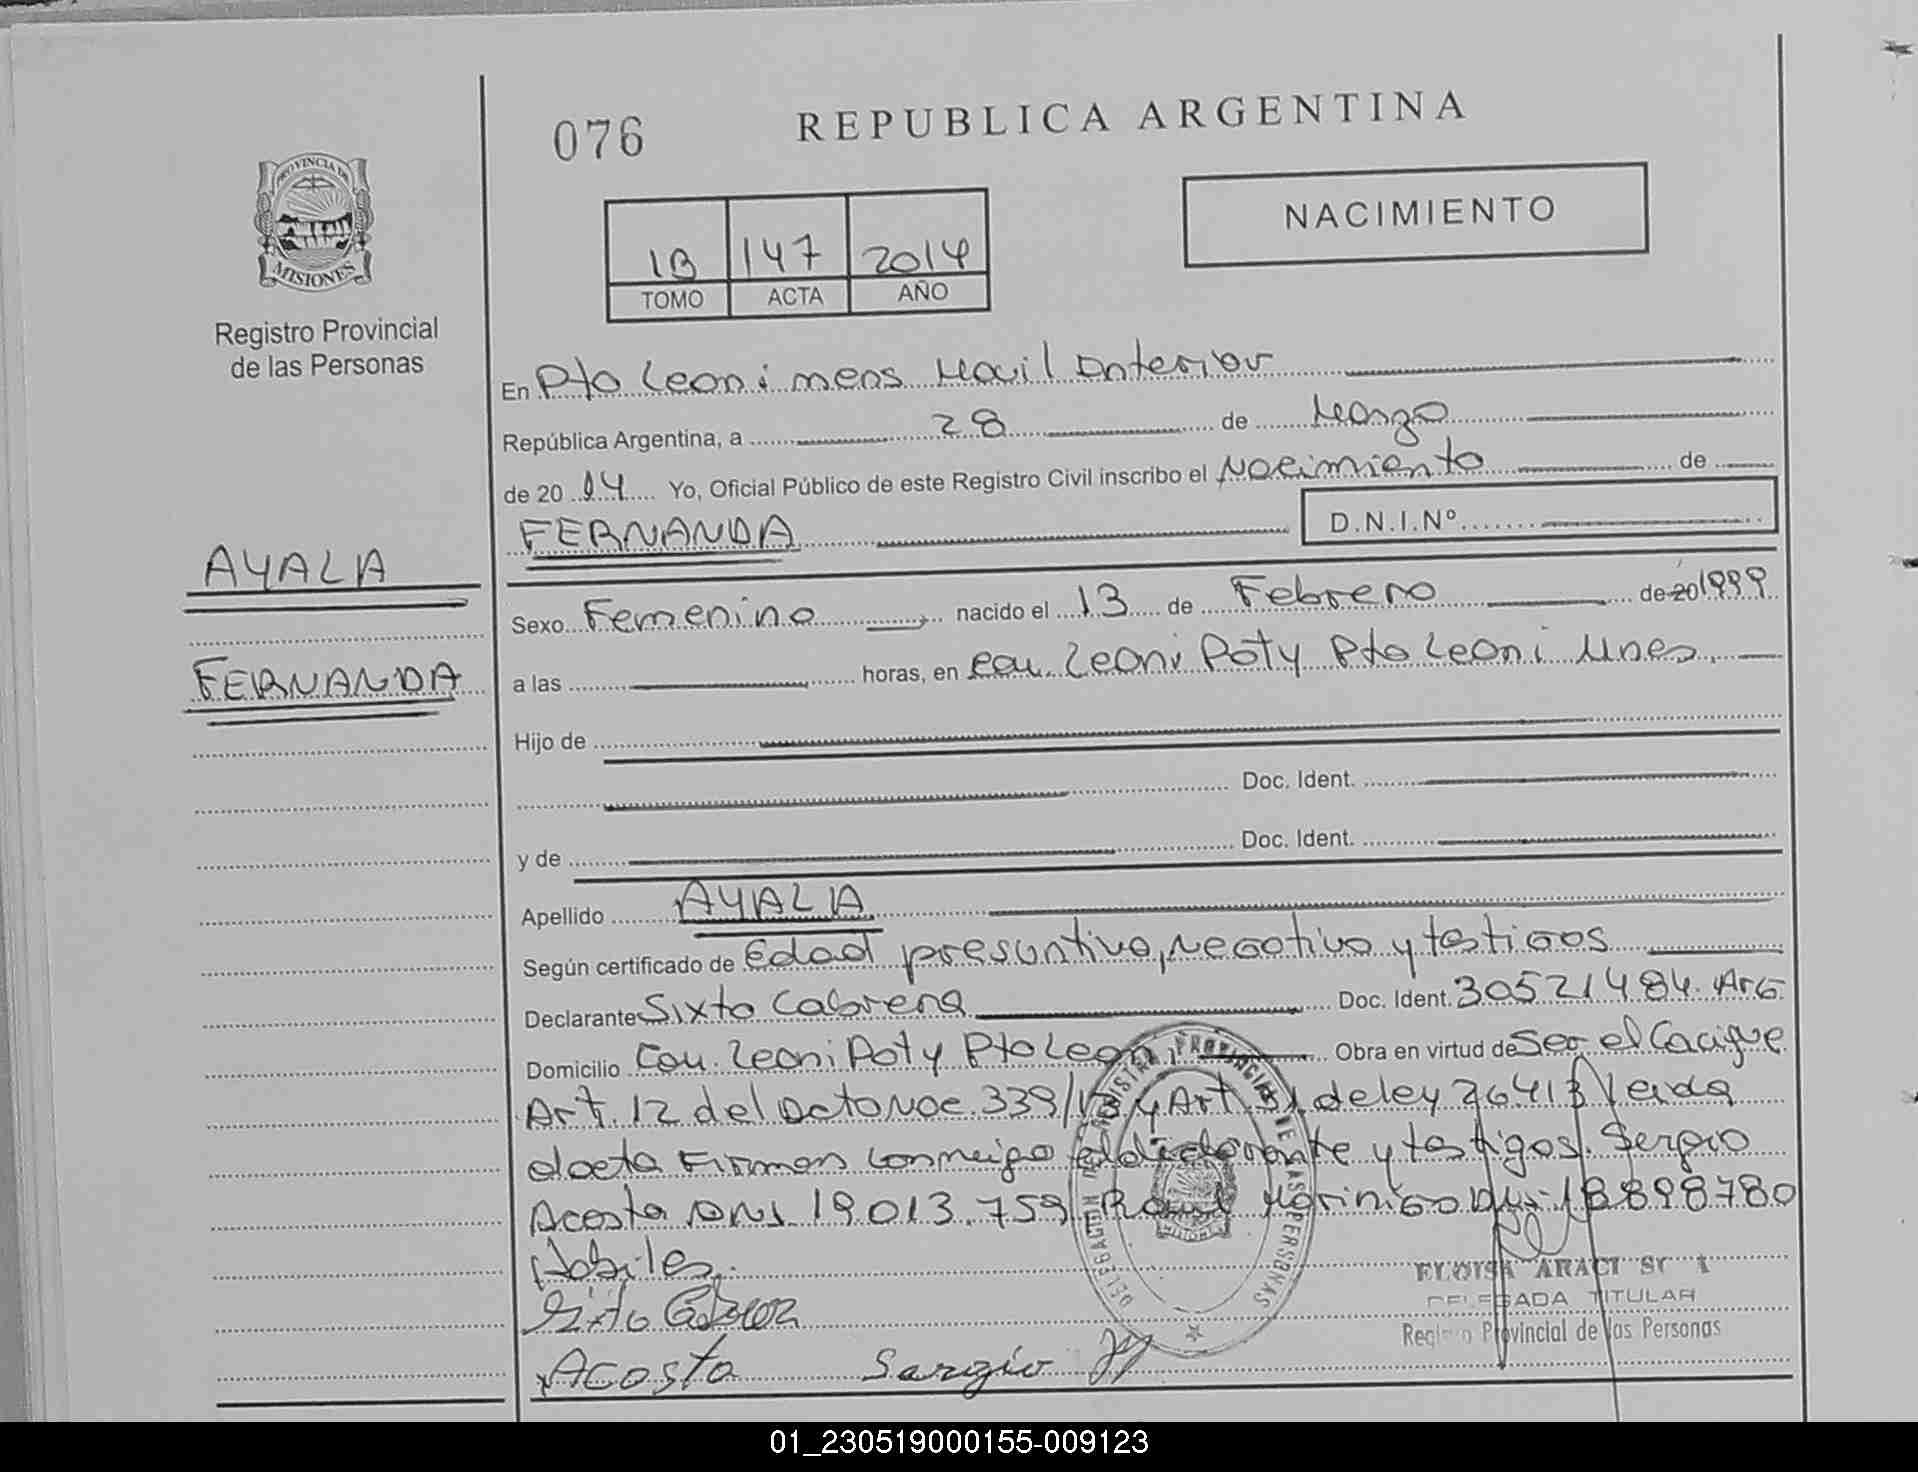 076
REPUBLICA ARGENTINA
PROVINCIA DE
MISIONES
Registro Provincial
de las Personas
1B 147 2014
TOMO ACTA AÑO
NACIMIENTO
En Pto Leoni mens Movil Interior
República Argentina, a 28 de Marzo
de 2014 Yo, Oficial Público de este Registro Civil inscribo el Nacimiento de
FERNANDA D.N.I.Nº
AYALA
FERNANDA
Sexo Femenino nacido el 13 de Febrero de 20 1999
a las horas, en Leoni Poty Pto Leoni Mnes.
Hijo de
Doc. Ident.
y de Doc. Ident.
Apellido AYALA
Según certificado de Edad presuntiva, negativo y testigos
Declarante Sixto Cabrera Doc. Ident. 30521484. ArG
Domicilio Leoni Poty Pto Leoni Obra en virtud de Ser el Cacique
Art. 12 del 339/13 y Art. de ley 26413 leida
el acta Firman conmigo el declarante y testigos. Sergio
Acosta DNI 19.013.759 18898780
Habiles.
Sixto Cabrera
Acosta Sergio
DELEGACION
REGISTRO PROVINCIAL DE LAS PERSONAS
ELOISA ARACI
DELEGADA TITULAR
Registro Provincial de las Personas
01_230519000155-009123